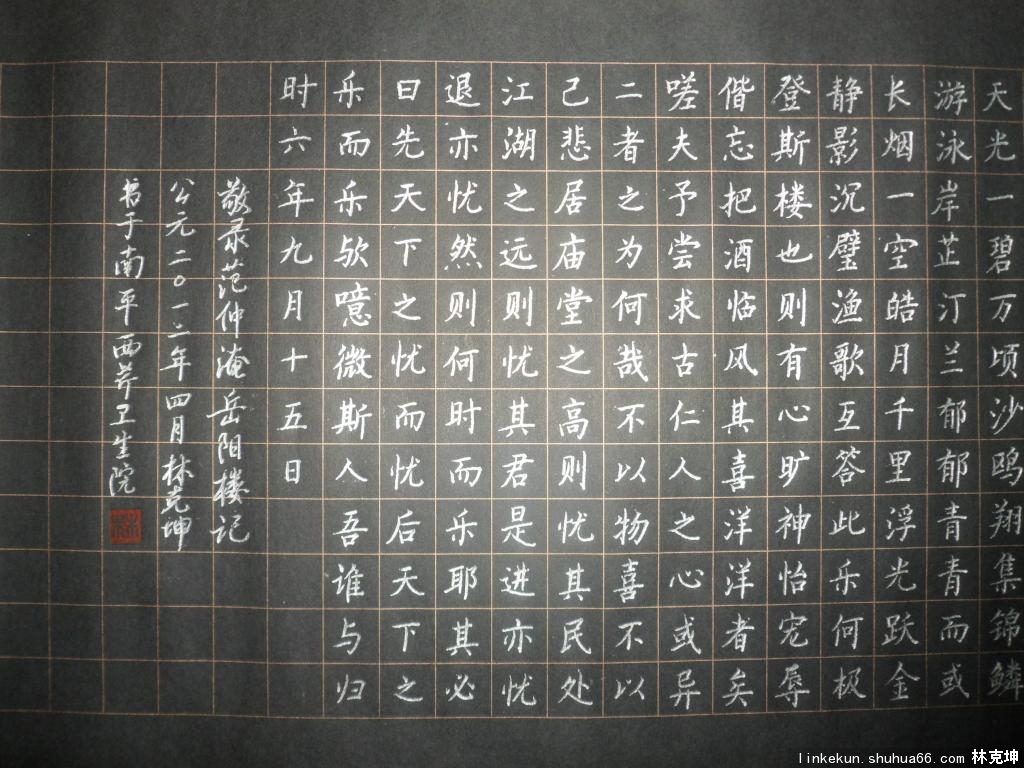 天光一碧万顷沙鸥翔集锦鳞
游泳岸芷汀兰郁郁青青而或
长烟一空皓月千里浮光跃金
静影沉璧渔歌互答此乐何极
登斯楼也则有心旷神怡宠辱
偕忘把酒临风其喜洋洋者矣
嗟夫予尝求古仁人之心或异
二者之为何哉不以物喜不以
己悲居庙堂之高则忧其民处
江湖之远则忧其君是进亦忧
退亦忧然则何时而乐耶其必
曰先天下之忧而忧后天下之
乐而乐欤噫微斯人吾谁与归
时六年九月十五日
敬录范仲淹岳阳楼记
公元二〇一二年四月林克坤
书于南平西芹卫生院
linkekun.shuhua66.com 林克坤